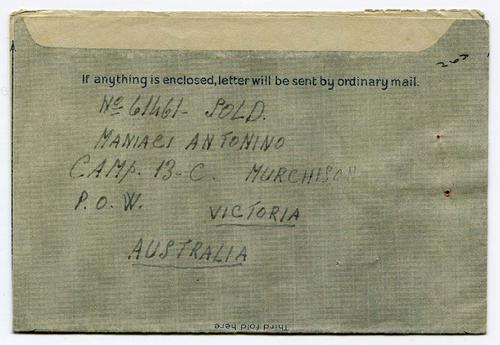 If anything is enclosed, letter will be sent by ordinary mail.
Nº 61461- SOLD.
MANIACI ANTONINO
CAMP. 13-C. MURCHISON
P.O.W. VICTORIA
AUSTRALIA
Third fold here